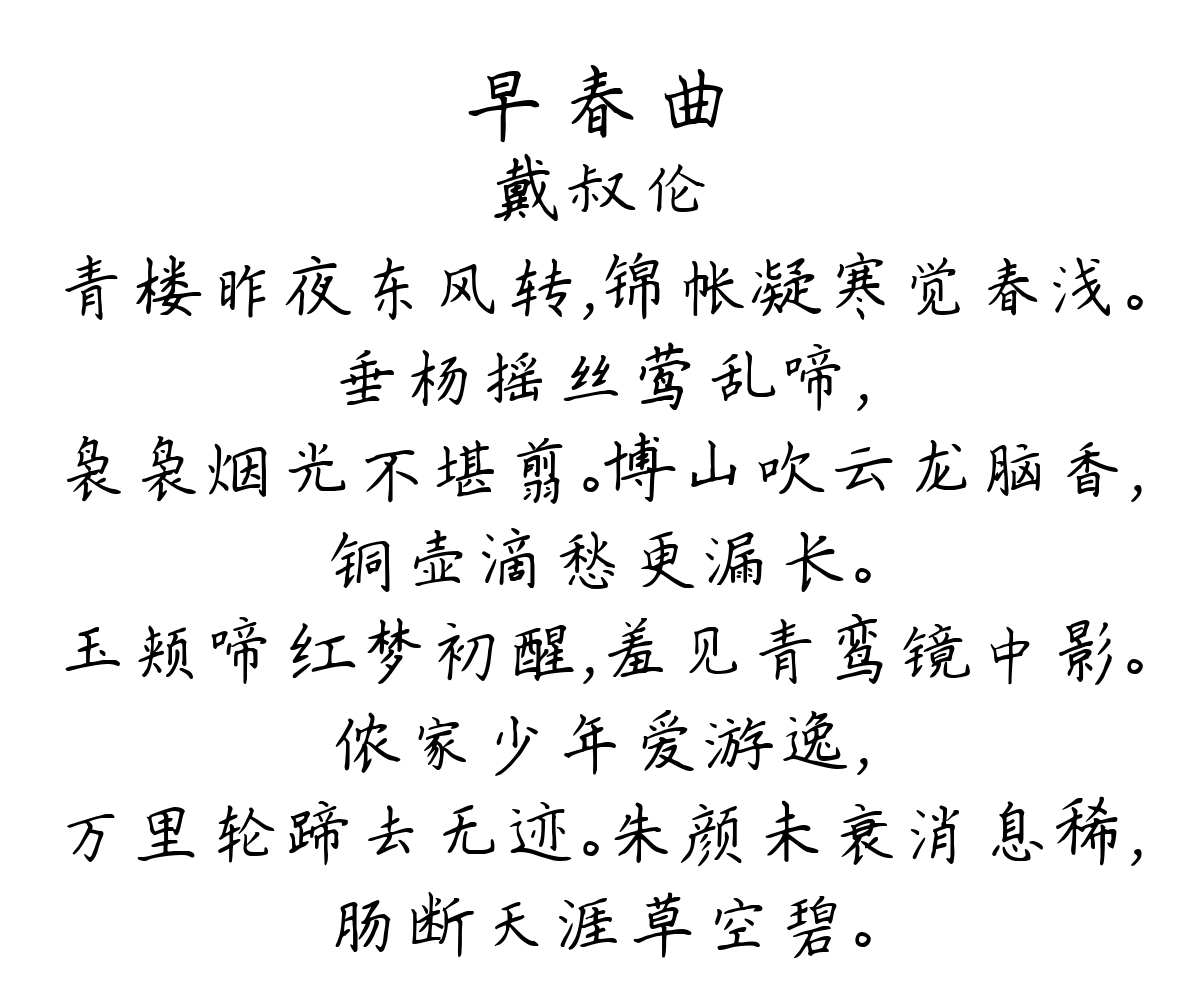 早春曲
戴叔伦
青楼昨夜东风转,锦帐凝寒觉春浅。
垂杨摇丝莺乱啼,
袅袅烟光不堪翦。博山吹云龙脑香,
铜壶滴愁更漏长。
玉颊啼红梦初醒,羞见青鸾镜中影。
侬家少年爱游逸,
万里轮蹄去无迹。朱颜未衰消息稀,
肠断天涯草空碧。